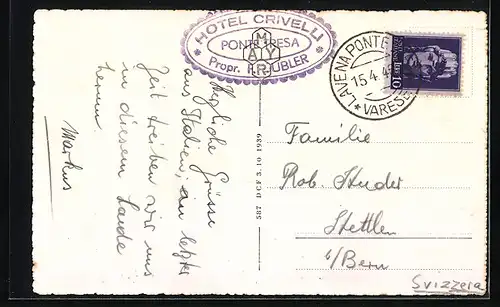 HOTEL CRIVELLI
PONTE TRESA
MAY
Propr. F. RÜBLER
LAVENA PONTE
15.4.4
* VARESE
10
Herzliche Grüsse
aus Italien, in letzter
Zeit treiben wir uns
in diesem Lande
herum.
Markus
587 DCP 3. 10 1939
Familie
Rob. Studer
Stettlen
b/Bern
Svizzera